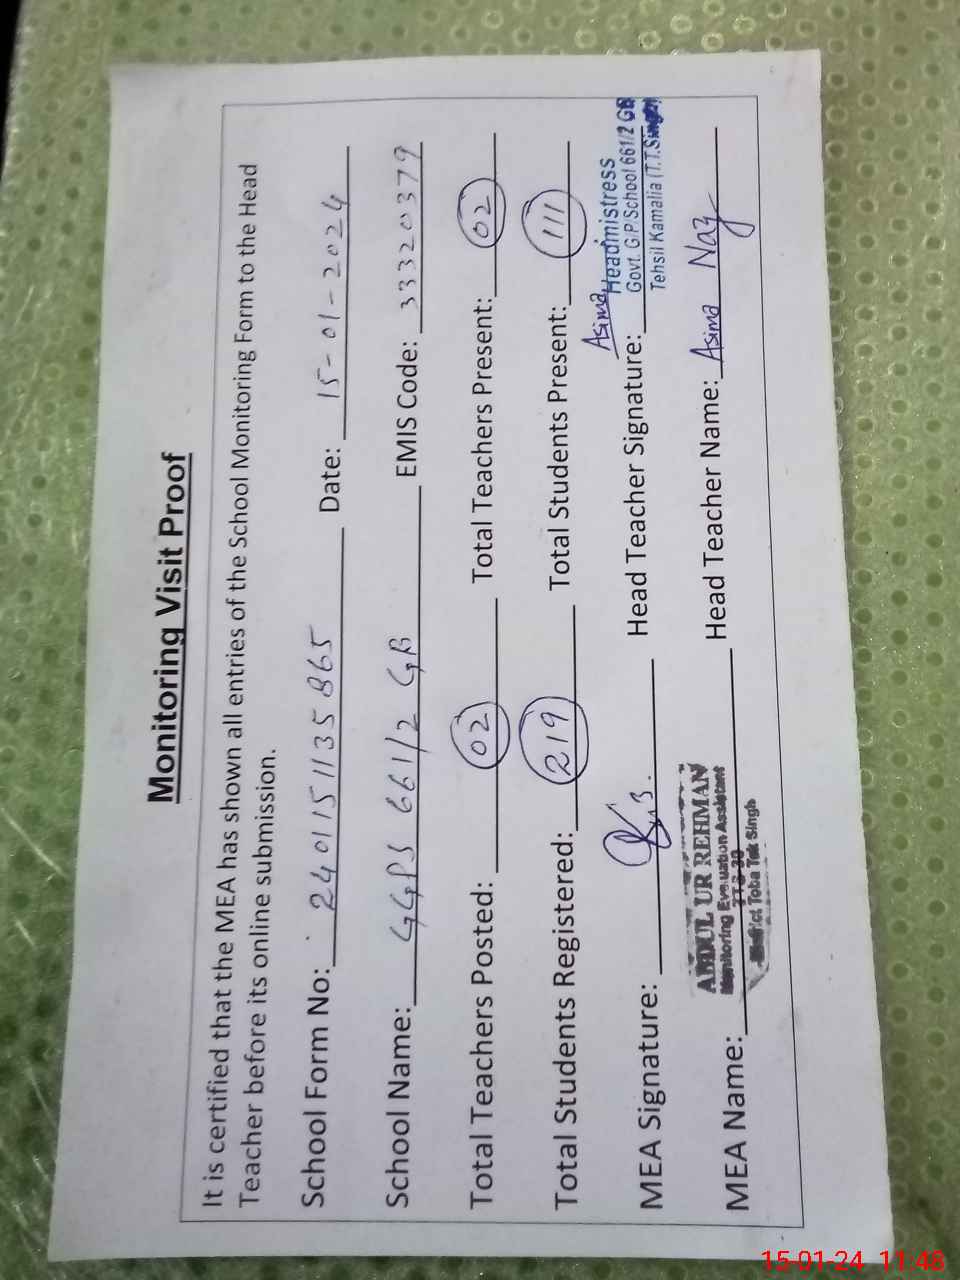 Monitoring Visit Proof
It is certified that the MEA has shown all entries of the School Monitoring Form to the Head
Teacher before its online submission.
School Form No: 2401151135865 Date: 15-01-2024
School Name: GGPS 661/2 GB EMIS Code: 33320379
Total Teachers Posted: 02 Total Teachers Present: 02
Total Students Registered: 219 Total Students Present: 111
MEA Signature: Head Teacher Signature: Asima
Headmistress
Govt. G/P/School 661/2 GB
Tehsil Kamalia (T.T.Singh)
MEA Name: Head Teacher Name: Asima Naz
ABDUL UR REHMAN
Monitoring Evaluation Assistant
TTS-30
District Toba Tek Singh
15-01-24 11:48